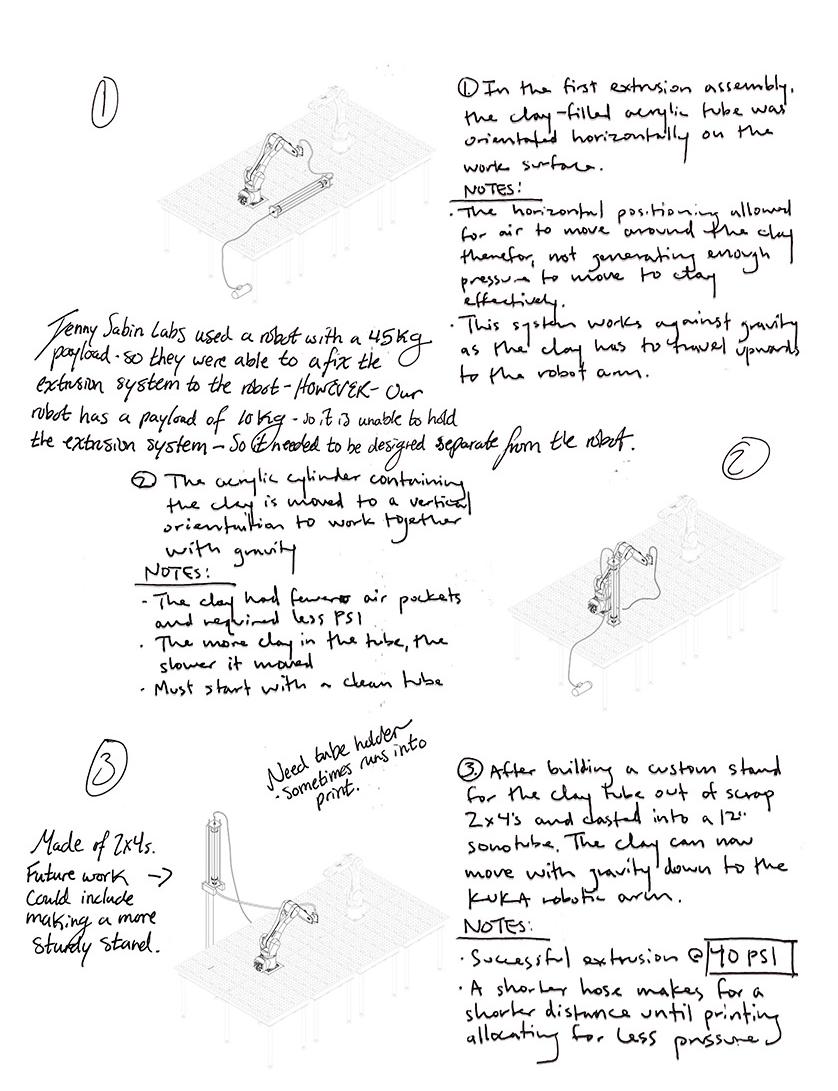 ①
①. In the first extrusion assembly,
the clay-filled acrylic tube was
orientated horizontally on the
work surface.
NOTES:
· The horizontal positioning allowed
for air to move around the clay
therefor, not generating enough
pressure to move to clay
effectively.
· This system works against gravity
as the clay has to travel upwards
to the robot arm.
Jenny Sabin Labs used a robot with a 45kg
payload - so they were able to afix the
extrusion system to the robot - HOWEVER - Our
robot has a payload of 10kg - so it is unable to hold
the extrusion system - So it needed to be designed separate from the robot.
②
② The acrylic cylinder containing
the clay is moved to a vertical
orientuition to work together
with gravity
NOTES:
· The clay had fewer air pockets
and required less PSI
· The more clay in the tube, the
slower it moved
· Must start with a clean tube
③
Need tube holder
· sometimes runs into
print.
Made of 2x4s.
Future work →
Could include
making a more
sturdy stand.
③. After building a custom stand
for the clay tube out of scrap
2x4's and casted into a 12"
sonotube. The clay can now
move with gravity down to the
KUKA robotic arm.
NOTES:
· Successful extrusion @ 40 PSI
· A shorter hose makes for a
shorter distance until printing
allocating for less pressure.